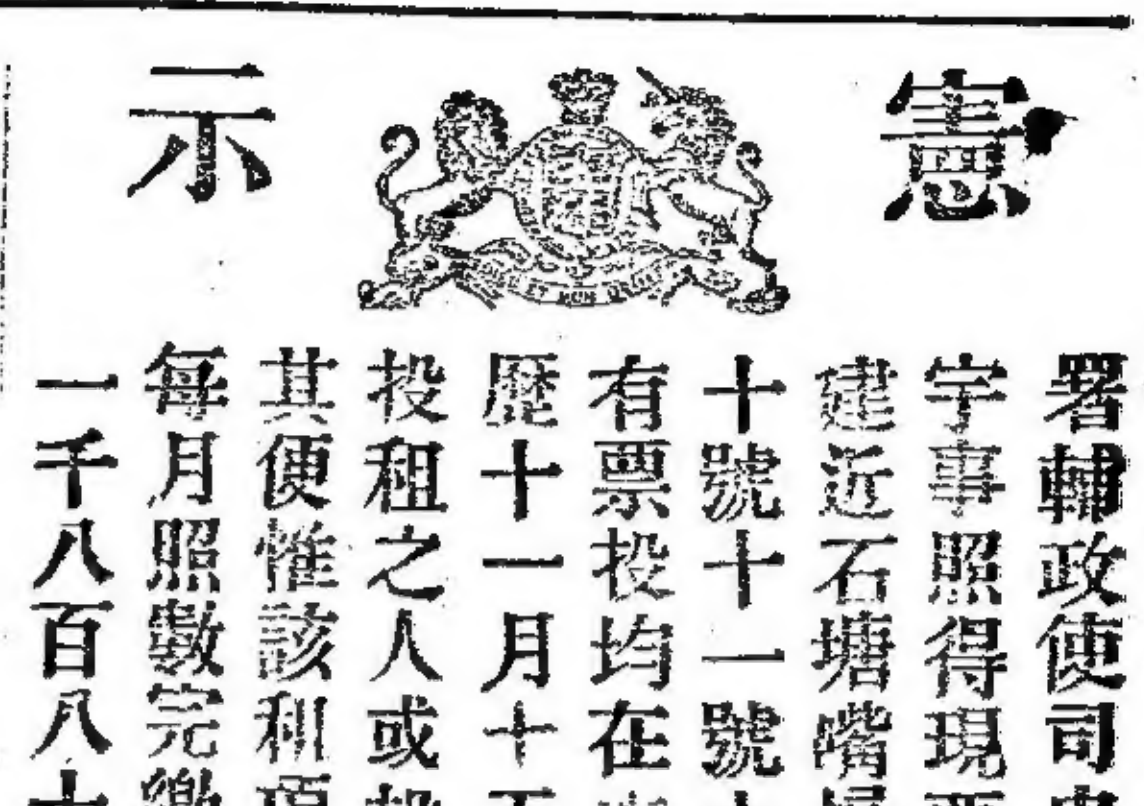 憲示
署輔政使司
字事照得現
建近石塘嘴
十號十一號
有票投均在
歷十一月十
投租之人或
其便惟該利
每月照數完
一千八百八十